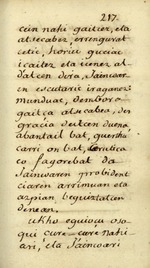 217.
cein nahi gaitiez, eta
atsecabez erreguzat
cetic, horiec guciac
icaitez eta ciener al-
datcen dira, Jaincoar-
en escutaric iraganez
munduac, dembora
gaitça atsecabea, des
gracia deitcen duena
abantail bat, guertha
carri on bat,
co fagorebat da
Jaincoaren probident
ciaren arrimuan eta
azpian beguiztatcen
denean.
Ukho eguiocu oso-
qui cure cure nahi
ari, eta Jaincoari